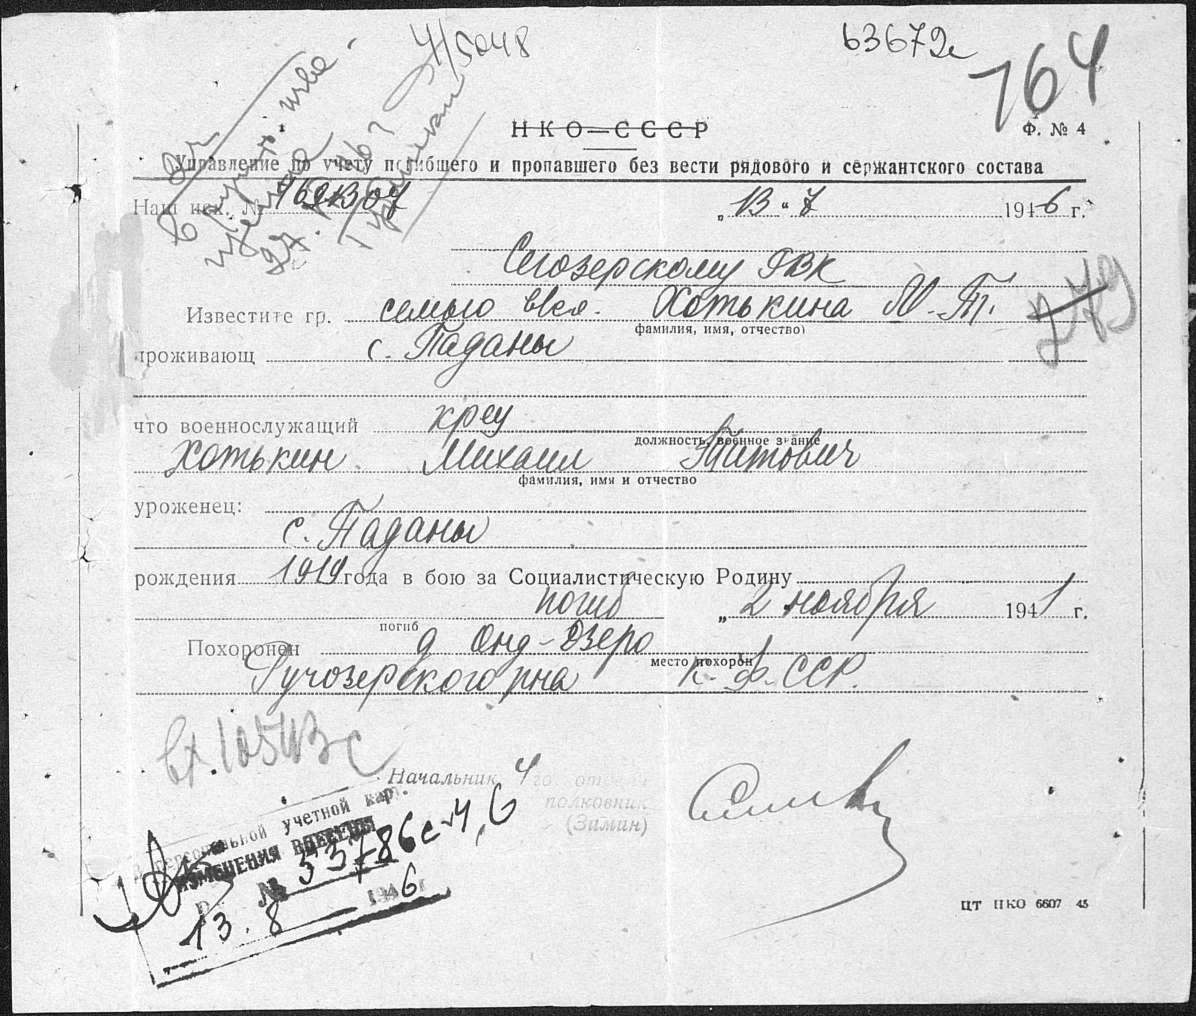 4/5048
63672с
764
НКО—СССР
Ф. № 4
Управление по учету погибшего и пропавшего без вести рядового и сержантского состава
Наш исх. №
„ 13 " 7 1946 г.
Сегозерскому РВК
279
Известите гр. семью Хотькина М. Т.
(фамилия, имя, отчество)
проживающ с. Паданы
что военнослужащий кр-ец
должность, военное звание
Хотькин Михаил Титович
фамилия, имя и отчество
уроженец:
с. Паданы
рождения 1919 года в бою за Социалистическую Родину
погиб „ 2 ноября 1941 г.
погиб
Похоронен д Онд-Озеро
место похорон
Ругозерского р-на К-Ф. ССР.
вх. 10543с
Начальник 4 го отдела
полковник
(Зимин)
персональной учетной карт.
ИЗМЕНЕНИЯ ВНЕСЕНЫ
№ 53786с
13. 8 1946 г
ЦТ НКО 6607 45